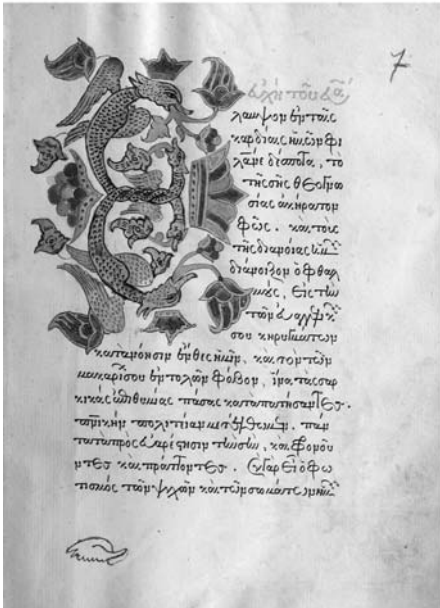 7
εὐχὴ τοῦ εὐα
λαμψον ἐν ταῖς
καρδίαις ἡμῶν φι
λᾶνε δέσποτα, τὸ
τῆς σῆς θεογνω
σίας ἀκήρατον
φῶς. καὶ τοὺς
τῆς διανοίας ἡμ
διάνοιξον ὀφθαλ
μούς, εἰς τὴν
τῶν εὐαγγικ
σου κηρυγμάτων
κατανόησιν ἔνθες ἡμῖν, καὶ τὸν τῶν
μακαρίων σου ἐντολῶν φόβον, ἵνα τὰς σαρ
κικὰς ἐπιθυμίας πάσας καταπατήσαντες.
πνικὴν πολιτείαν μετέλθωμεν. πάν
τα τὰ πρὸς εὐαρέστησιν τὴν σὴν, καὶ φρονοῦ
ντες καὶ πράττοντες. Σὺ γὰρ εἶ ὁ φω
τισμὸς τῶν ψυχῶν καὶ τῶν σωμάτων ἡμ